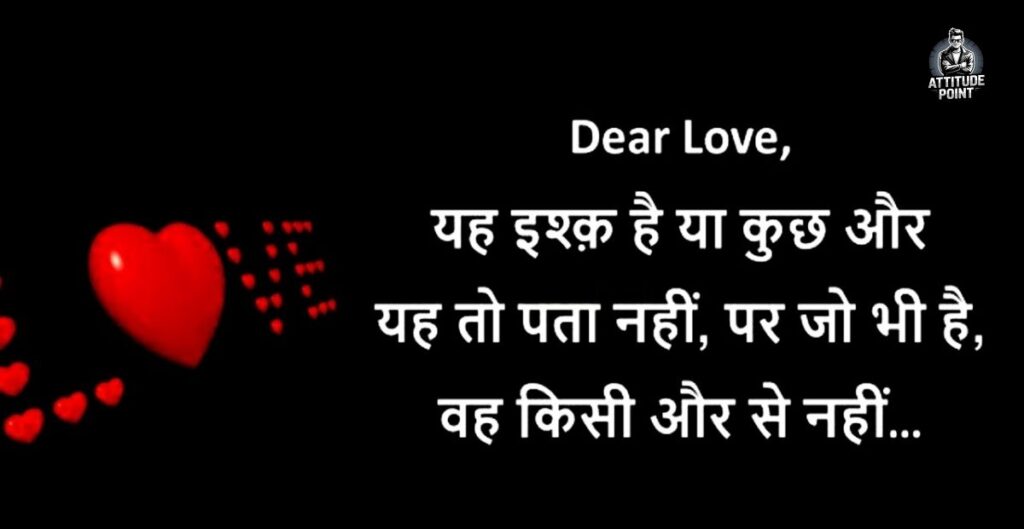 ATTITUDE
POINT
Dear Love,
यह इश्क़ है या कुछ और
यह तो पता नहीं, पर जो भी है,
वह किसी और से नहीं...